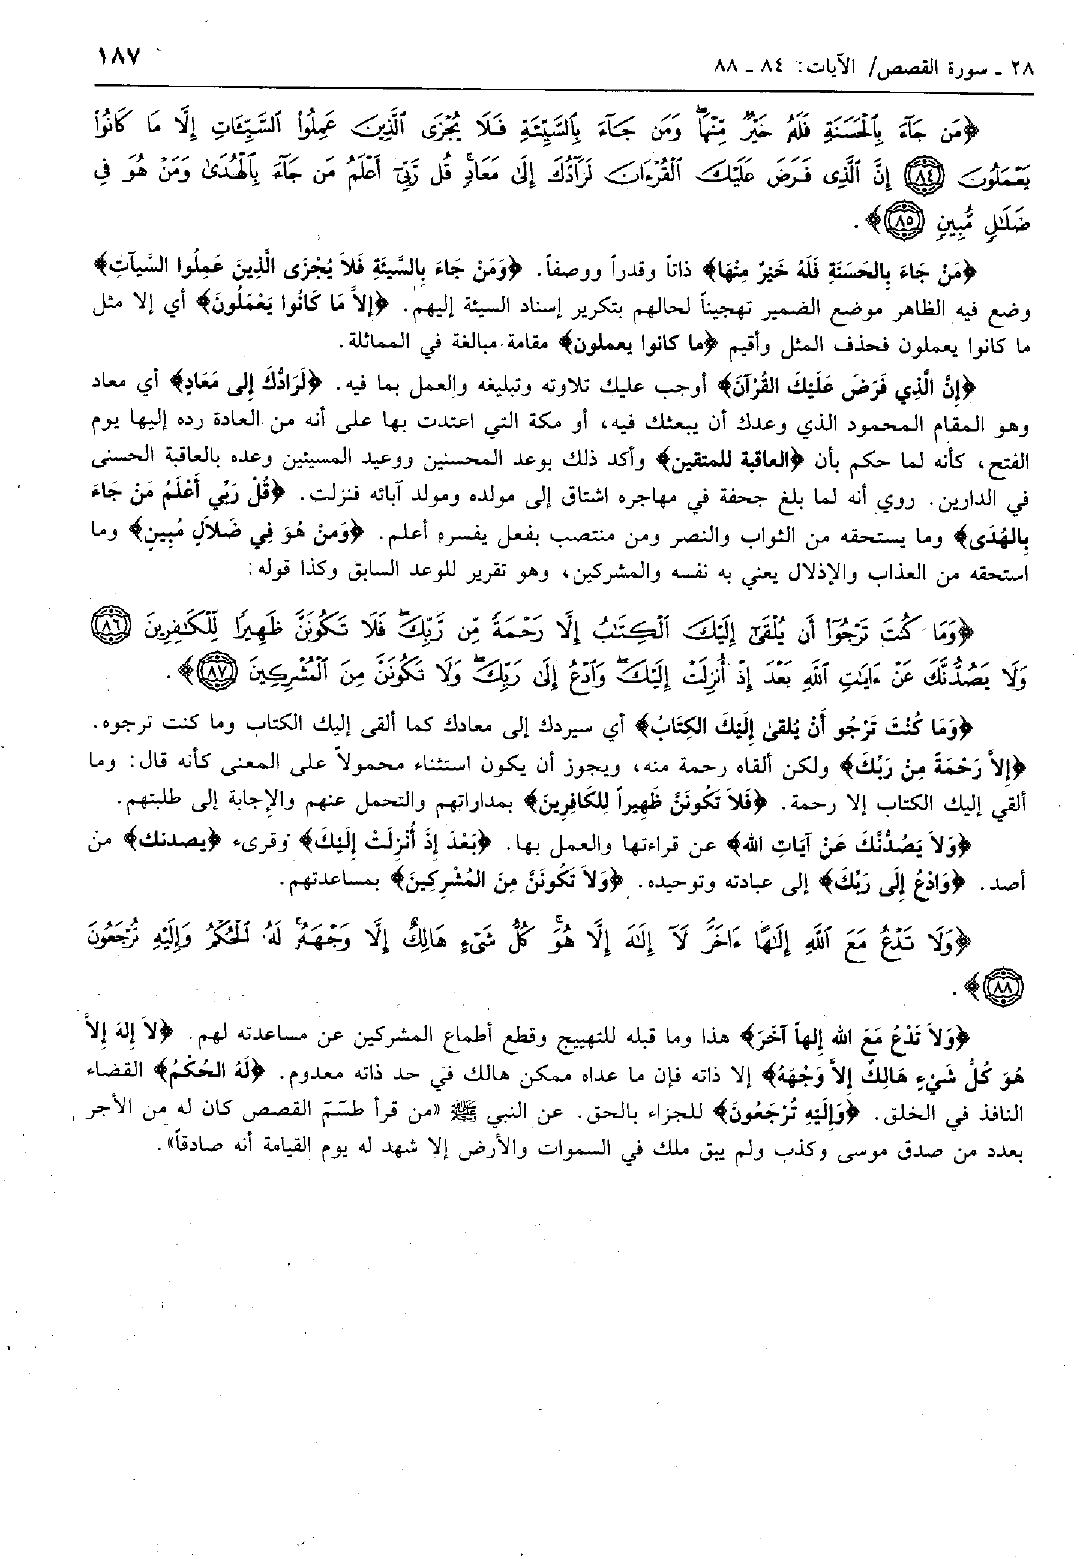 ٢٨ ـ سورة القصص/ الآيات: ٨٤ ـ ٨٨
١٨٧
﴿مَن جَآءَ بِٱلْحَسَنَةِ فَلَهُۥ خَيْرٌ مِّنْهَا ۖ وَمَن جَآءَ بِٱلسَّيِّئَةِ فَلَا يُجْزَى ٱلَّذِينَ عَمِلُوا۟ ٱلسَّيِّـَٔاتِ إِلَّا مَا كَانُوا۟
يَعْمَلُونَ ﴿٨٤﴾ إِنَّ ٱلَّذِى فَرَضَ عَلَيْكَ ٱلْقُرْءَانَ لَرَآدُّكَ إِلَىٰ مَعَادٍ ۚ قُل رَّبِّىٓ أَعْلَمُ مَن جَآءَ بِٱلْهُدَىٰ وَمَنْ هُوَ فِى
ضَلَـٰلٍ مُّبِينٍ ﴿٨٥﴾﴾.
﴿مَن جَاءَ بِالحَسَنَةِ فَلَهُ خَيْرٌ مِنْهَا﴾ ذاتاً وقدراً ووصفاً. ﴿وَمَنْ جَاءَ بِالسَّيئَةِ فَلاَ يُجْزَى الَّذِينَ عَمِلُوا السَّيآتِ﴾
وضع فيه الظاهر موضع الضمير تهجيناً لحالهم بتكرير إسناد السيئة إليهم. ﴿إلاَّ مَا كَانُوا يَعْمَلُونَ﴾ أي إلا مثل
ما كانوا يعملون فحذف المثل وأقيم ﴿ما كانوا يعملون﴾ مقامة مبالغة في المماثلة.
﴿إِنَّ الَّذِي فَرَضَ عَلَيْكَ القُرْآنَ﴾ أوجب عليك تلاوته وتبليغه والعمل بما فيه. ﴿لَرَادُّكَ إِلى مَعَادٍ﴾ أي معاد
وهو المقام المحمود الذي وعدك أن يبعثك فيه، أو مكة التي اعتدت بها على أنه من العادة رده إليها يوم
الفتح، كأنه لما حكم بأن ﴿العاقبة للمتقين﴾ وأكد ذلك بوعد المحسنين ووعيد المسيئين وعده بالعاقبة الحسنى
في الدارين. روي أنه لما بلغ جحفة في مهاجره اشتاق إلى مولده ومولد آبائه فنزلت. ﴿قُلْ رَبِّي أَعْلَمُ مَنْ جَاءَ
بِالهُدَى﴾ وما يستحقه من الثواب والنصر ومن منتصب بفعل يفسره أعلم. ﴿وَمَنْ هُوَ فِي ضَلاَلٍ مُبِينٍ﴾ وما
استحقه من العذاب والإذلال يعني به نفسه والمشركين، وهو تقرير للوعد السابق وكذا قوله:
﴿وَمَا كُنتَ تَرْجُوٓا۟ أَن يُلْقَىٰٓ إِلَيْكَ ٱلْكِتَـٰبُ إِلَّا رَحْمَةً مِّن رَّبِّكَ ۖ فَلَا تَكُونَنَّ ظَهِيرًا لِّلْكَـٰفِرِينَ ﴿٨٦﴾
وَلَا يَصُدُّنَّكَ عَنْ ءَايَـٰتِ ٱللَّهِ بَعْدَ إِذْ أُنزِلَتْ إِلَيْكَ ۖ وَٱدْعُ إِلَىٰ رَبِّكَ ۖ وَلَا تَكُونَنَّ مِنَ ٱلْمُشْرِكِينَ ﴿٨٧﴾﴾.
﴿وَمَا كُنْتَ تَرْجُو أَنْ يُلقىٰ إِلَيْكَ الكِتَابُ﴾ أي سيردك إلى معادك كما ألقى إليك الكتاب وما كنت ترجوه.
﴿إِلاَّ رَحْمَةً مِنْ رَبِّكَ﴾ ولكن ألقاه رحمة منه، ويجوز أن يكون استثناء محمولاً على المعنى كأنه قال: وما
ألقي إليك الكتاب إلا رحمة. ﴿فَلاَ تَكُونَنَّ ظَهِيراً لِلكَافِرِينَ﴾ بمداراتهم والتحمل عنهم والإجابة إلى طلبتهم.
﴿وَلاَ يَصُدُّنَّكَ عَنْ آيَاتِ الله﴾ عن قراءتها والعمل بها. ﴿بَعْدَ إِذْ أُنْزِلَتْ إِلَيْكَ﴾ وقرىء ﴿يصدنك﴾ من
أصد. ﴿وَادْعُ إِلَى رَبِّكَ﴾ إلى عبادته وتوحيده. ﴿وَلاَ تَكُونَنَّ مِنَ المُشْرِكِينَ﴾ بمساعدتهم.
﴿وَلَا تَدْعُ مَعَ ٱللَّهِ إِلَـٰهًا ءَاخَرَ ۘ لَآ إِلَـٰهَ إِلَّا هُوَ ۚ كُلُّ شَىْءٍ هَالِكٌ إِلَّا وَجْهَهُۥ ۚ لَهُ ٱلْحُكْمُ وَإِلَيْهِ تُرْجَعُونَ
﴿٨٨﴾﴾.
﴿وَلاَ تَدْعُ مَعَ الله إِلهاً آخَرَ﴾ هذا وما قبله للتهييج وقطع أطماع المشركين عن مساعدته لهم. ﴿لاَ إِلهَ إِلاَّ
هُوَ كُلُّ شَيْءٍ هَالِكٌ إِلاَّ وَجْهَهُ﴾ إلا ذاته فإن ما عداه ممكن هالك في حد ذاته معدوم. ﴿لَهُ الحُكْمُ﴾ القضاء
النافذ في الخلق. ﴿وَإِلَيْهِ تُرْجَعُونَ﴾ للجزاء بالحق. عن النبي ﷺ «من قرأ طسَمَ القصص كان له من الأجر
بعدد من صدق موسى وكذب ولم يبق ملك في السموات والأرض إلا شهد له يوم القيامة أنه صادقاً».